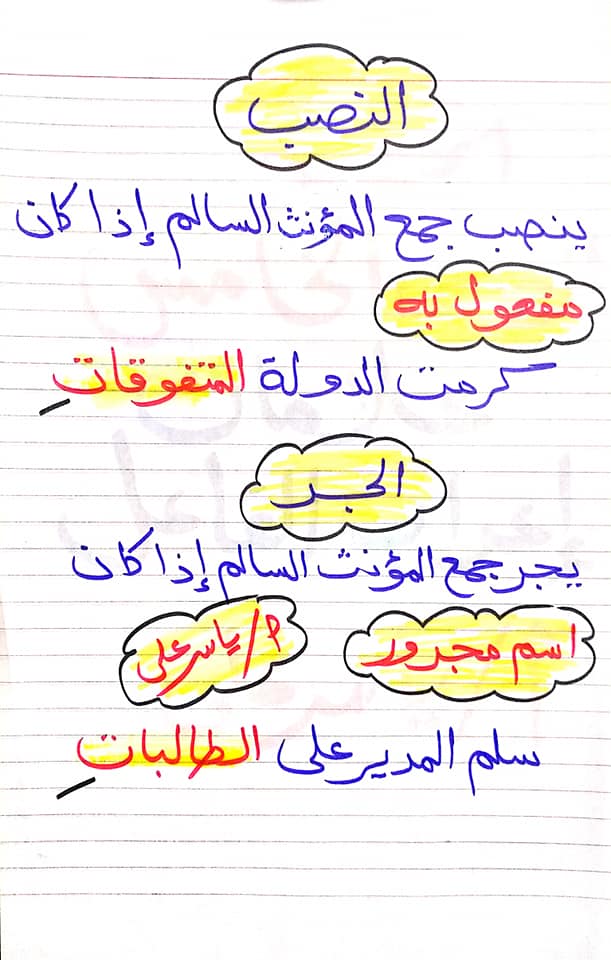 النصب
ينصب جمع المؤنث السالم إذا كان
مفعول به
كرمت الدولة المتفوقاتِ
الجر
يجر جمع المؤنث السالم إذا كان
اسم مجرور
م/ياسر على
سلم المدير على الطالباتِ